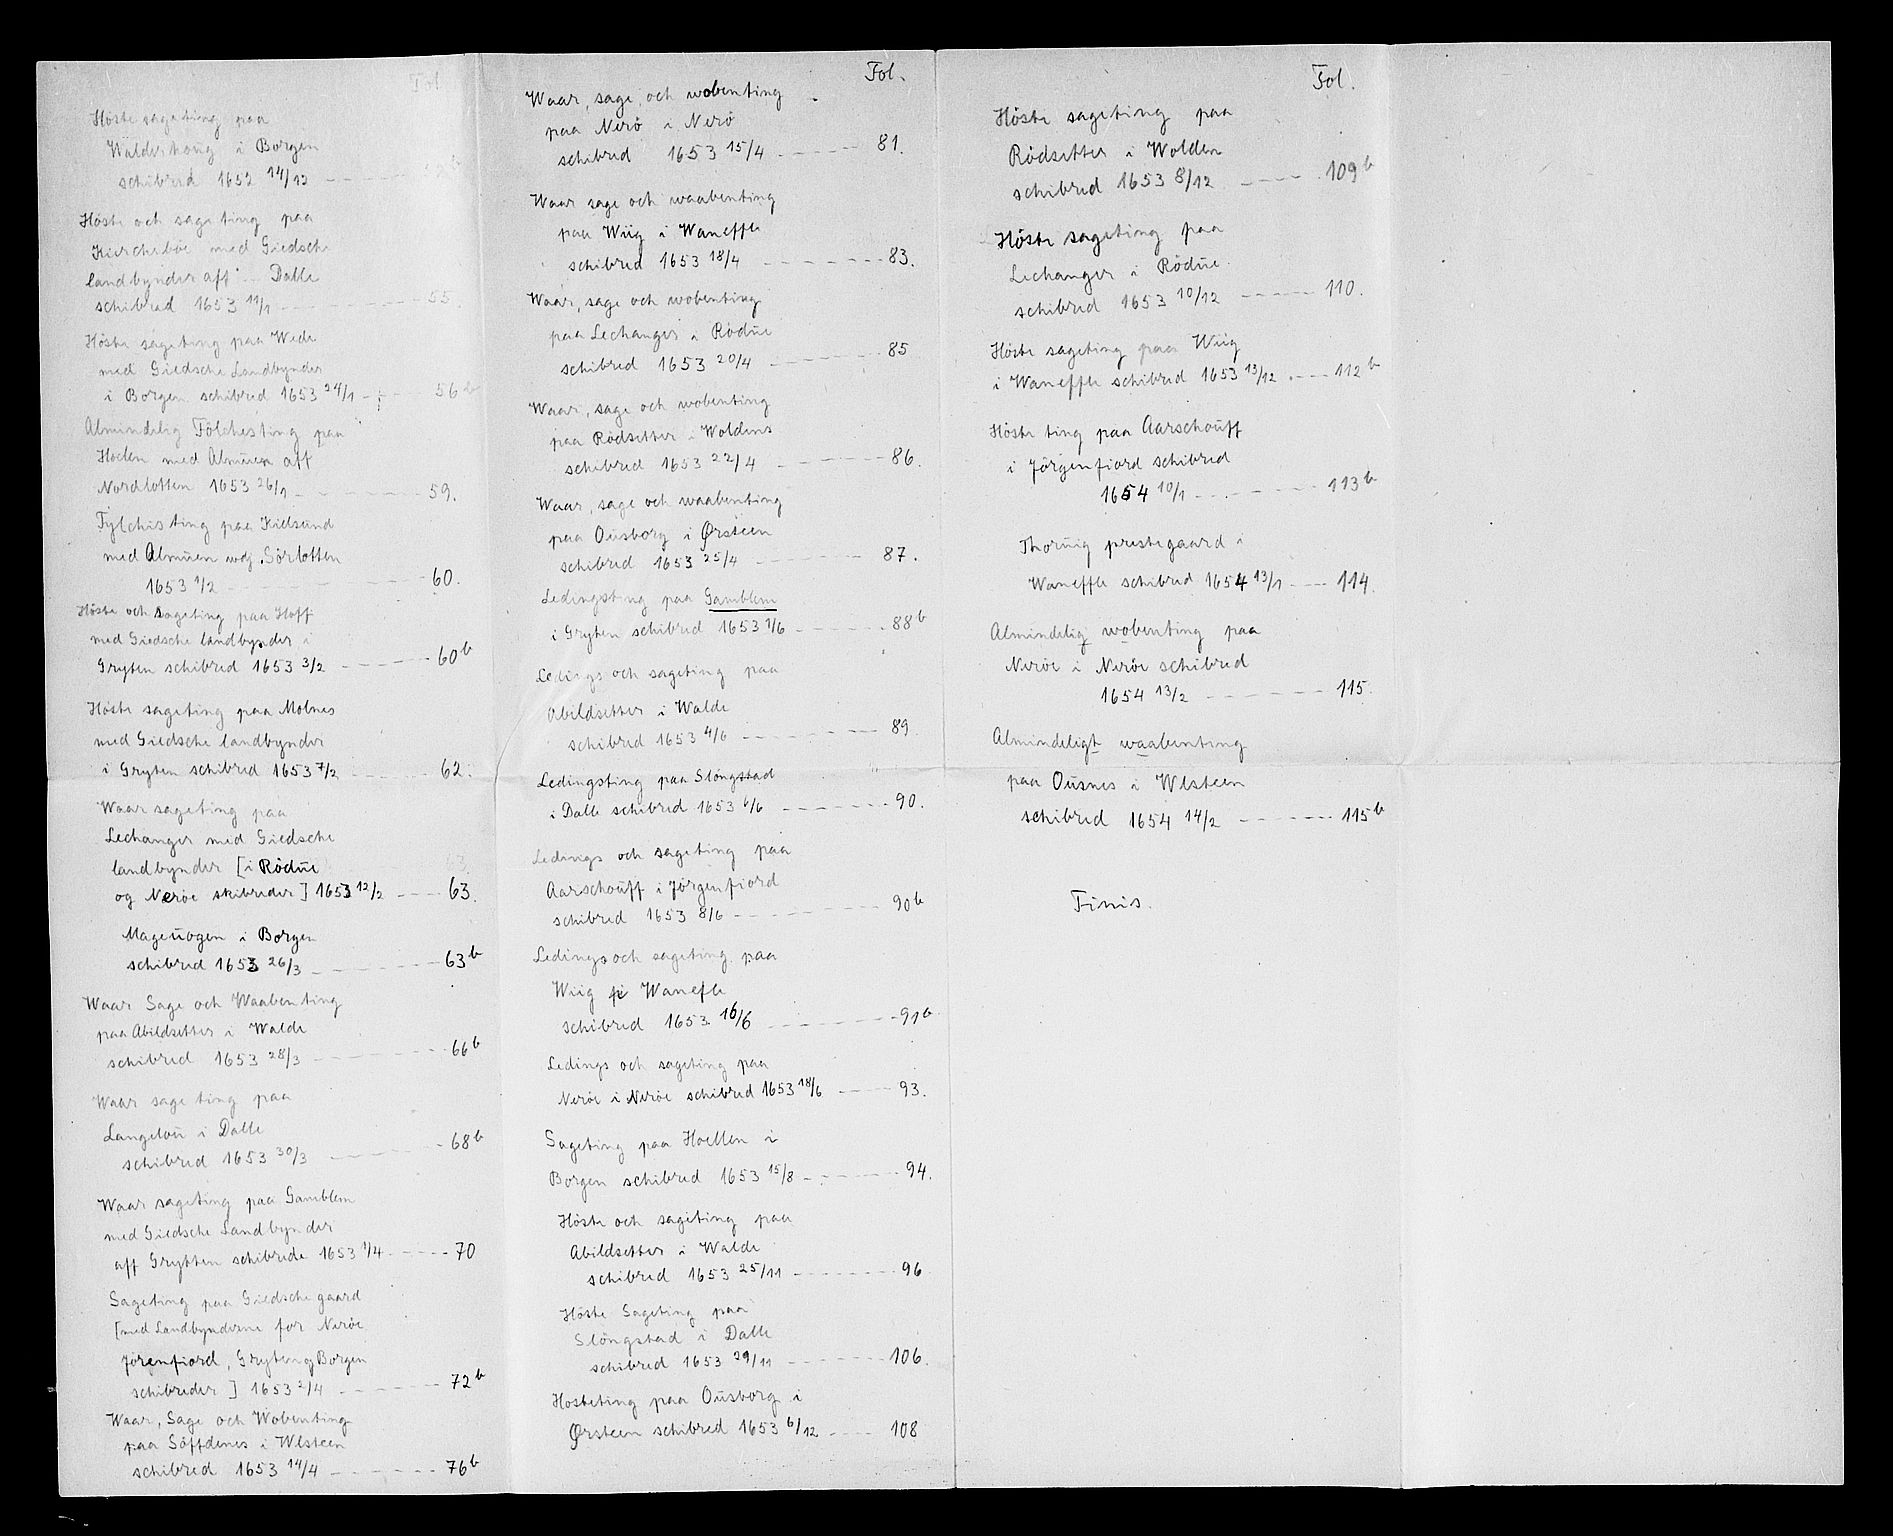 Fol
Höste sageting paa
Walderhoug i Borgen
schibred 1652 14/12 - - - - -
Höste och sage ting paa
Kircheböe med Giedsche
landbynder aff - Dalle
schibred 1653 11/1 - - - - - 55.
Höste sageting paa Wede
med Giedsche Landbynder
i Borgen schibred 1653 24/1 - - - 56b
Almindelig Fölchesting paa
Hoelen med Almuen aff
Nordlotten 1653 26/1 - - - - - 59.
Fylchisting paa Kielsund
med Almuen udj Sörlotten
1653 1/2 - - - - - 60.
Höste och sageting paa Hoff
med Giedsche landbynder i
Gryten schibred 1653 3/2 - - - - - 60b
Höste sageting paa Molnes
med Giedsche landbynder
i Gryten schibred 1653 7/2 - - - - - 62.
Waar sageting paa
Lechanger med Giedsche
landbynder [i Rödue
og Neröe skibreder] 1653 12/2 - - - - 63.
Mageuogen i Borgen
schibred 1653 26/3 - - - - - 63b
Waar Sage och Waabenting
paa Abildsetter i Walde
schibred 1653 28/3 - - - - - 66b
Waar sage ting paa
Langelou i Dalle
schibred 1653 30/3 - - - - - 68b
Waar sageting paa Gamblem
med Giedsche Landbynder
aff Grytten schibrede 1653 1/4 - - - - - 70
Sageting paa Giedschegaard
[med Landbynderne for Neröe
Jörenfiord, Gryten og Borgen
schibreder] 1653 2/4 - - - - - 72b
Waar, Sage och Wobenting
paa Söffdenes i Wlsteen
schibred 1653 14/4 - - - - - 76b
Fol.
Waar, sage, och wobenting
paa Nerö i Nerö
schibred 1653 15/4 - - - - - 81.
Waar sage och waabenting
paa Wiig i Waneffle
schibred 1653 18/4 - - - - - 83.
Waar, sage och wobenting
paa Lechanger i Rödue
schibred 1653 20/4 - - - - - 85
Waar, sage och wobenting
paa Rödsetter i Woldens
schibred 1653 22/4 - - - - - 86.
Waar, sage och waabenting
paa Ousborg i Ørsteen
schibred 1653 25/4 - - - - - 87.
Ledingsting paa Gamblem
i Gryten schibred 1653 1/6 - - - - - 88b
Ledings och sageting paa
Abildsetter i Walde
schibred 1653 4/6 - - - - - 89.
Ledingsting paa Slöngstad
i Dalle schibred 1653 6/6 - - - - - 90.
Ledings och sageting paa
Aarschouff i Jörgenfiord
schibred 1653 8/6 - - - - - 90b
Ledings och sageting paa
Wiig i Wanefle
schibred 1653 16/6 - - - - - 91b
Ledings och sageting paa
Neröe i Neröe schibred 1653 18/6 - - - - 93.
Sageting paa Hoellen i
Borgen schibred 1653 15/8 - - - - - 94.
Höste och sageting paa
Abildsetter i Walde
schibred 1653 25/11 - - - - - 96
Höste Sageting paa
Slöngstad i Dalle
schibred 1653 29/11 - - - - - 106.
Hosteting paa Ousborg i
Ørsteen schibred 1653 6/12 - - - - 108
Fol.
Höste sageting paa
Rödsetter i Wolden
schibred 1653 8/12 - - - - 109b
Höste sageting paa
Lechanger i Rödue
schibred 1653 10/12 - - - - - 110.
Höste sageting paa Wiig
i Waneffle schibred 1653 13/12 - - - 112b
Höste ting paa Aarschouff
i Jörgenfiord schibred
1654 10/1 - - - - - 113b
Thoruig prestegaard i
Waneffle schibred 1654 13/1 - - - - 114.
Almindelig wobenting paa
Neröe i Neröe schibred
1654 13/2 - - - - - 115.
Almindeligt waabenting
paa Ousnes i Wlsteen
schibred 1654 14/2 - - - - - 115b
Finis.